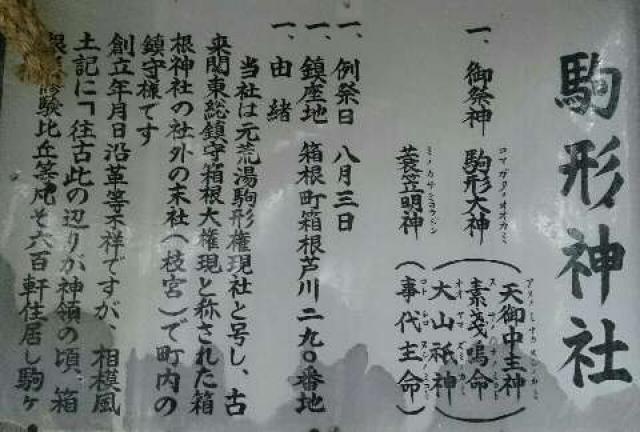 駒形神社
一、御祭神 駒形大神(天御中主神
コマガタノオオカミ
素戔嗚命
大山祇神)
蓑笠明神(事代主命)
ミノカサミョウジン
一、例祭日 八月三日
一、鎮座地 箱根町箱根芦川二九〇番地
一、由緒
当社は元荒湯駒形権現社と号し、古
来関東総鎮守箱根大権現と称された箱
根神社の社外の末社(枝宮)で町内の
鎮守様です
創立年月日沿革等不祥ですが、相模風
土記に「往古此の辺りが神領の頃、箱
修験比丘等凡そ六百軒住居し駒ヶ